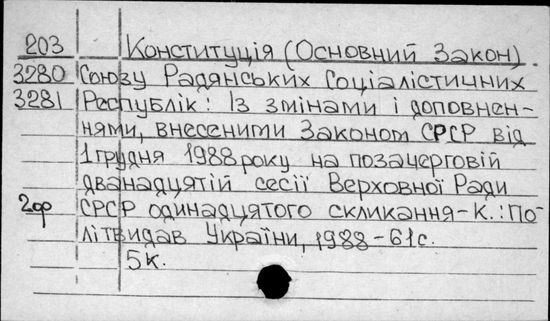 203 Конституція (Основний Закон)
3280 Союзу Радянських Соціалістичних
3281 Республік: Із змінами і доповнен-
нями, внесеними Законом СРСР від
1 грудня 1988 року на позачерговій
дванадцятій сесії Верховної Ради
2оф СРСР одинадцятого скликання-К.: По-
літвидав України, 1988-61с.
5к.